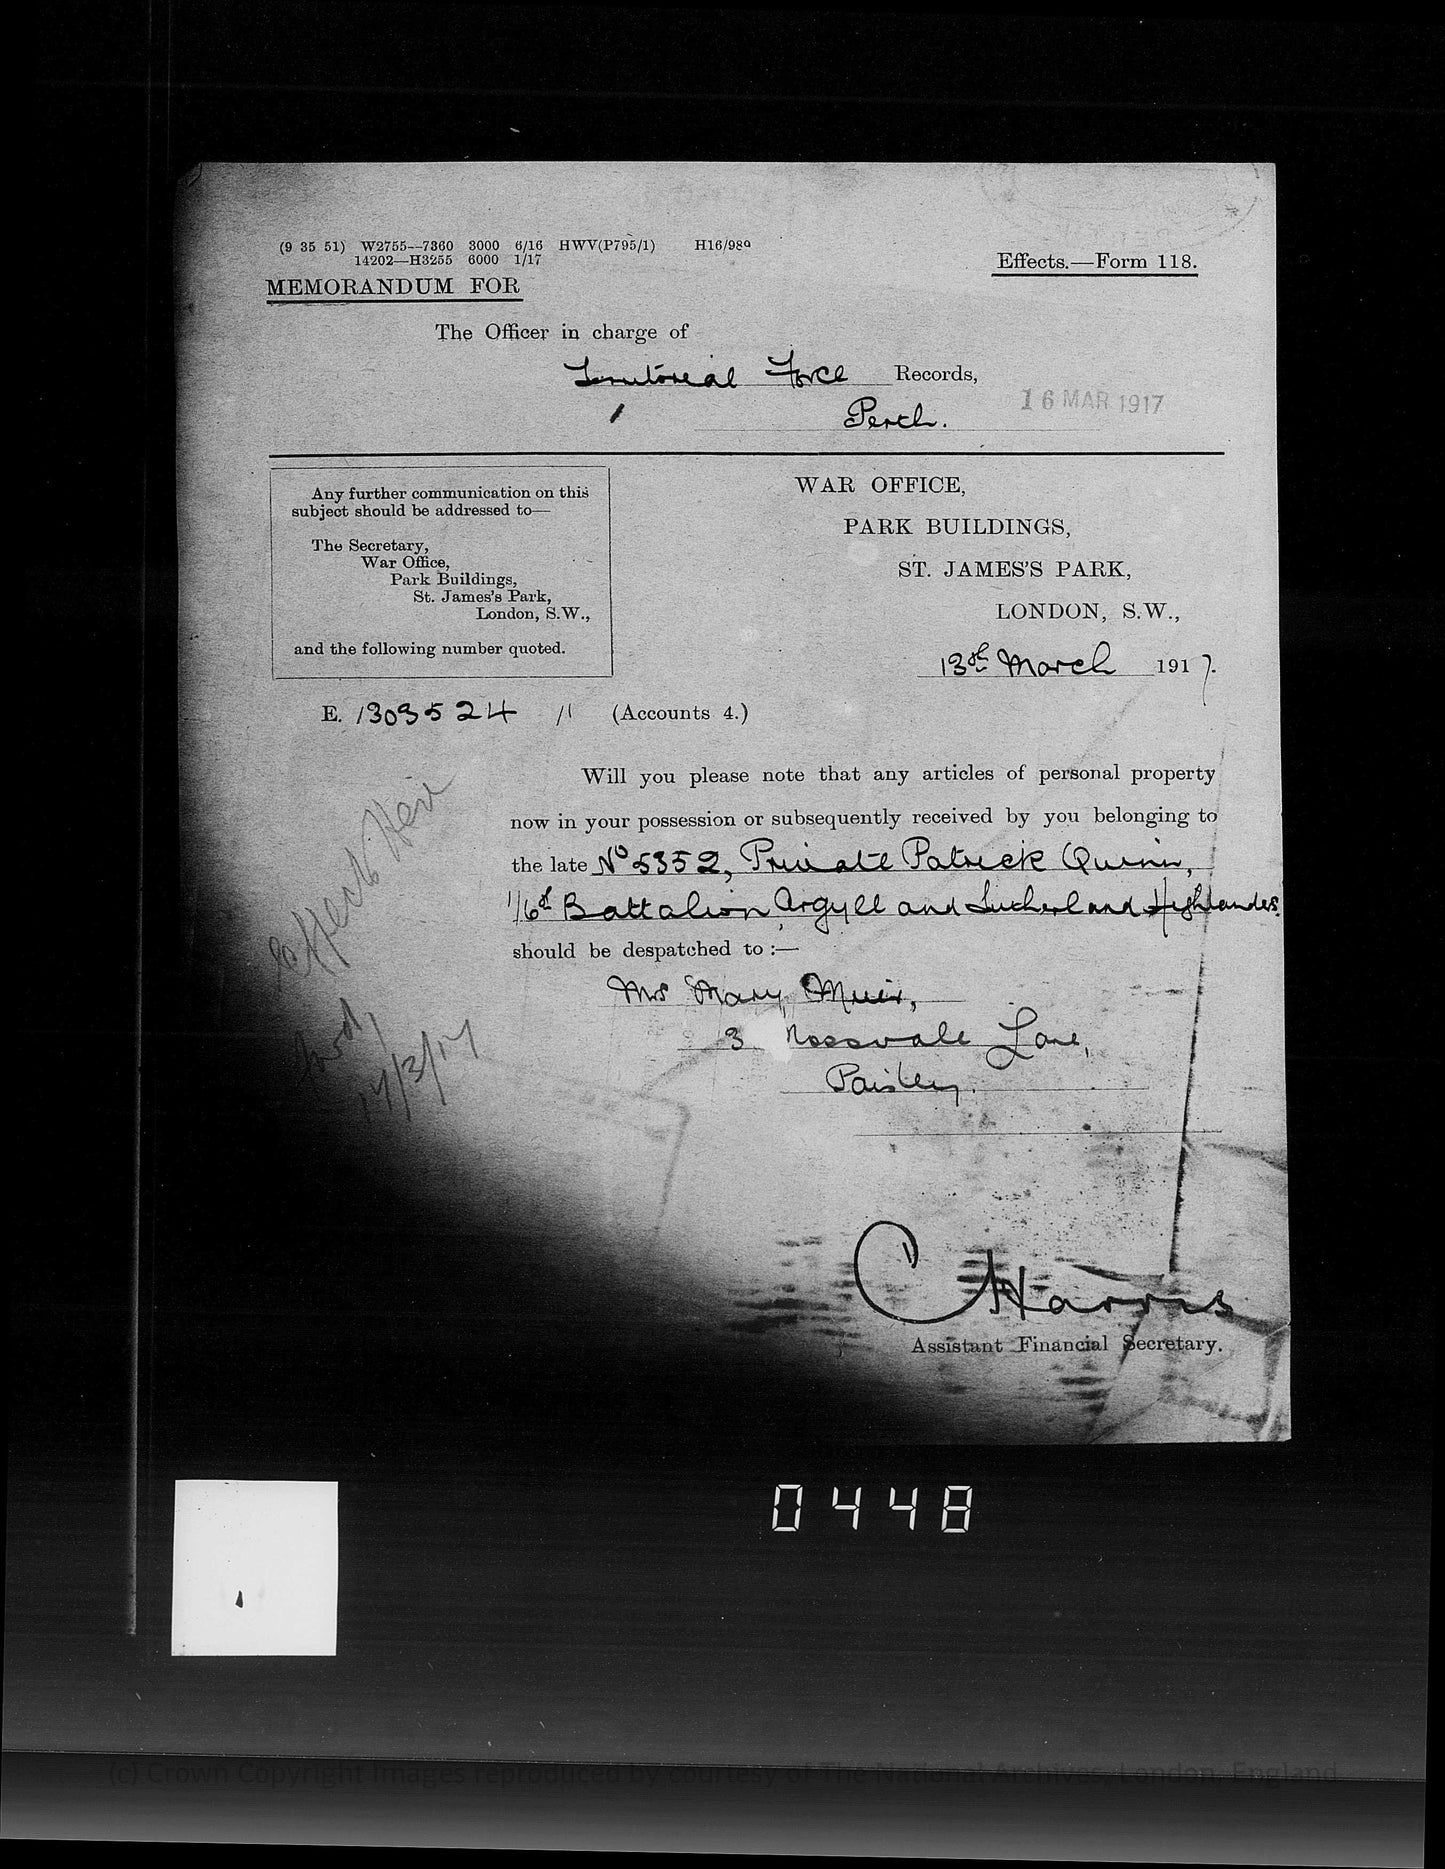 (9 35 51) W2755—7360 3000 6/16 HWV(P795/1) H16/989
14202—H3255 6000 1/17
Effects.—Form 118.
MEMORANDUM FOR
The Officer in charge of
Territorial Force Records,
Perth.
16 MAR 1917
Any further communication on this
subject should be addressed to—
The Secretary,
War Office,
Park Buildings,
St. James's Park,
London, S.W.,
and the following number quoted.
WAR OFFICE,
PARK BUILDINGS,
ST. JAMES'S PARK,
LONDON, S.W.,
13th March 1917.
E. 1303524 /1 (Accounts 4.)
Will you please note that any articles of personal property
now in your possession or subsequently received by you belonging to
the late No 5352, Private Patrick Quinn,
1/6th Battalion Argyll and Sutherland Highlanders
should be despatched to :—
Mrs Mary Muir,
3 Rossvale Lane,
Paisley.
Effects
17/3/17
C Harris
Assistant Financial Secretary.
0448
(c) Crown Copyright Images reproduced by courtesy of The National Archives, London, England.